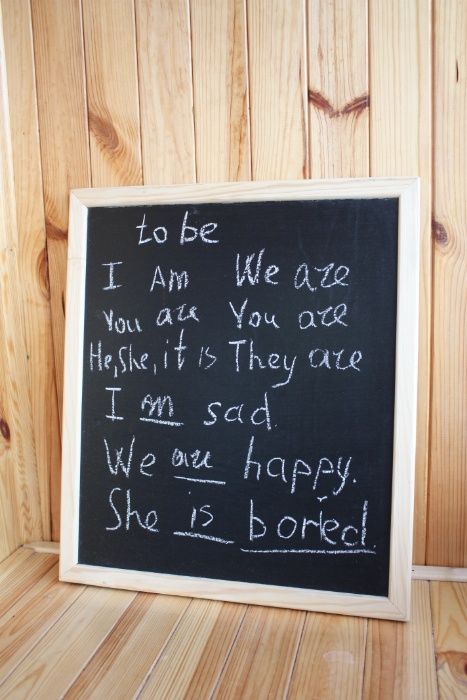 to be
I Am We are
You are You are
He, She, it is They are
I am sad.
We are happy.
She is boried.